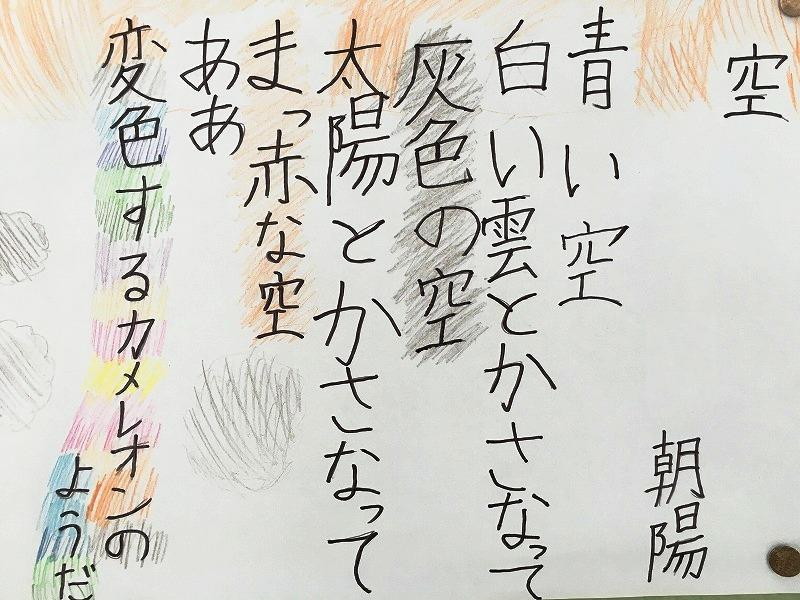 空
朝陽
青い空
白い雲とかさなって
灰色の空
太陽とかさなって
まっ赤な空
ああ
変色するカメレオンの
ようだ